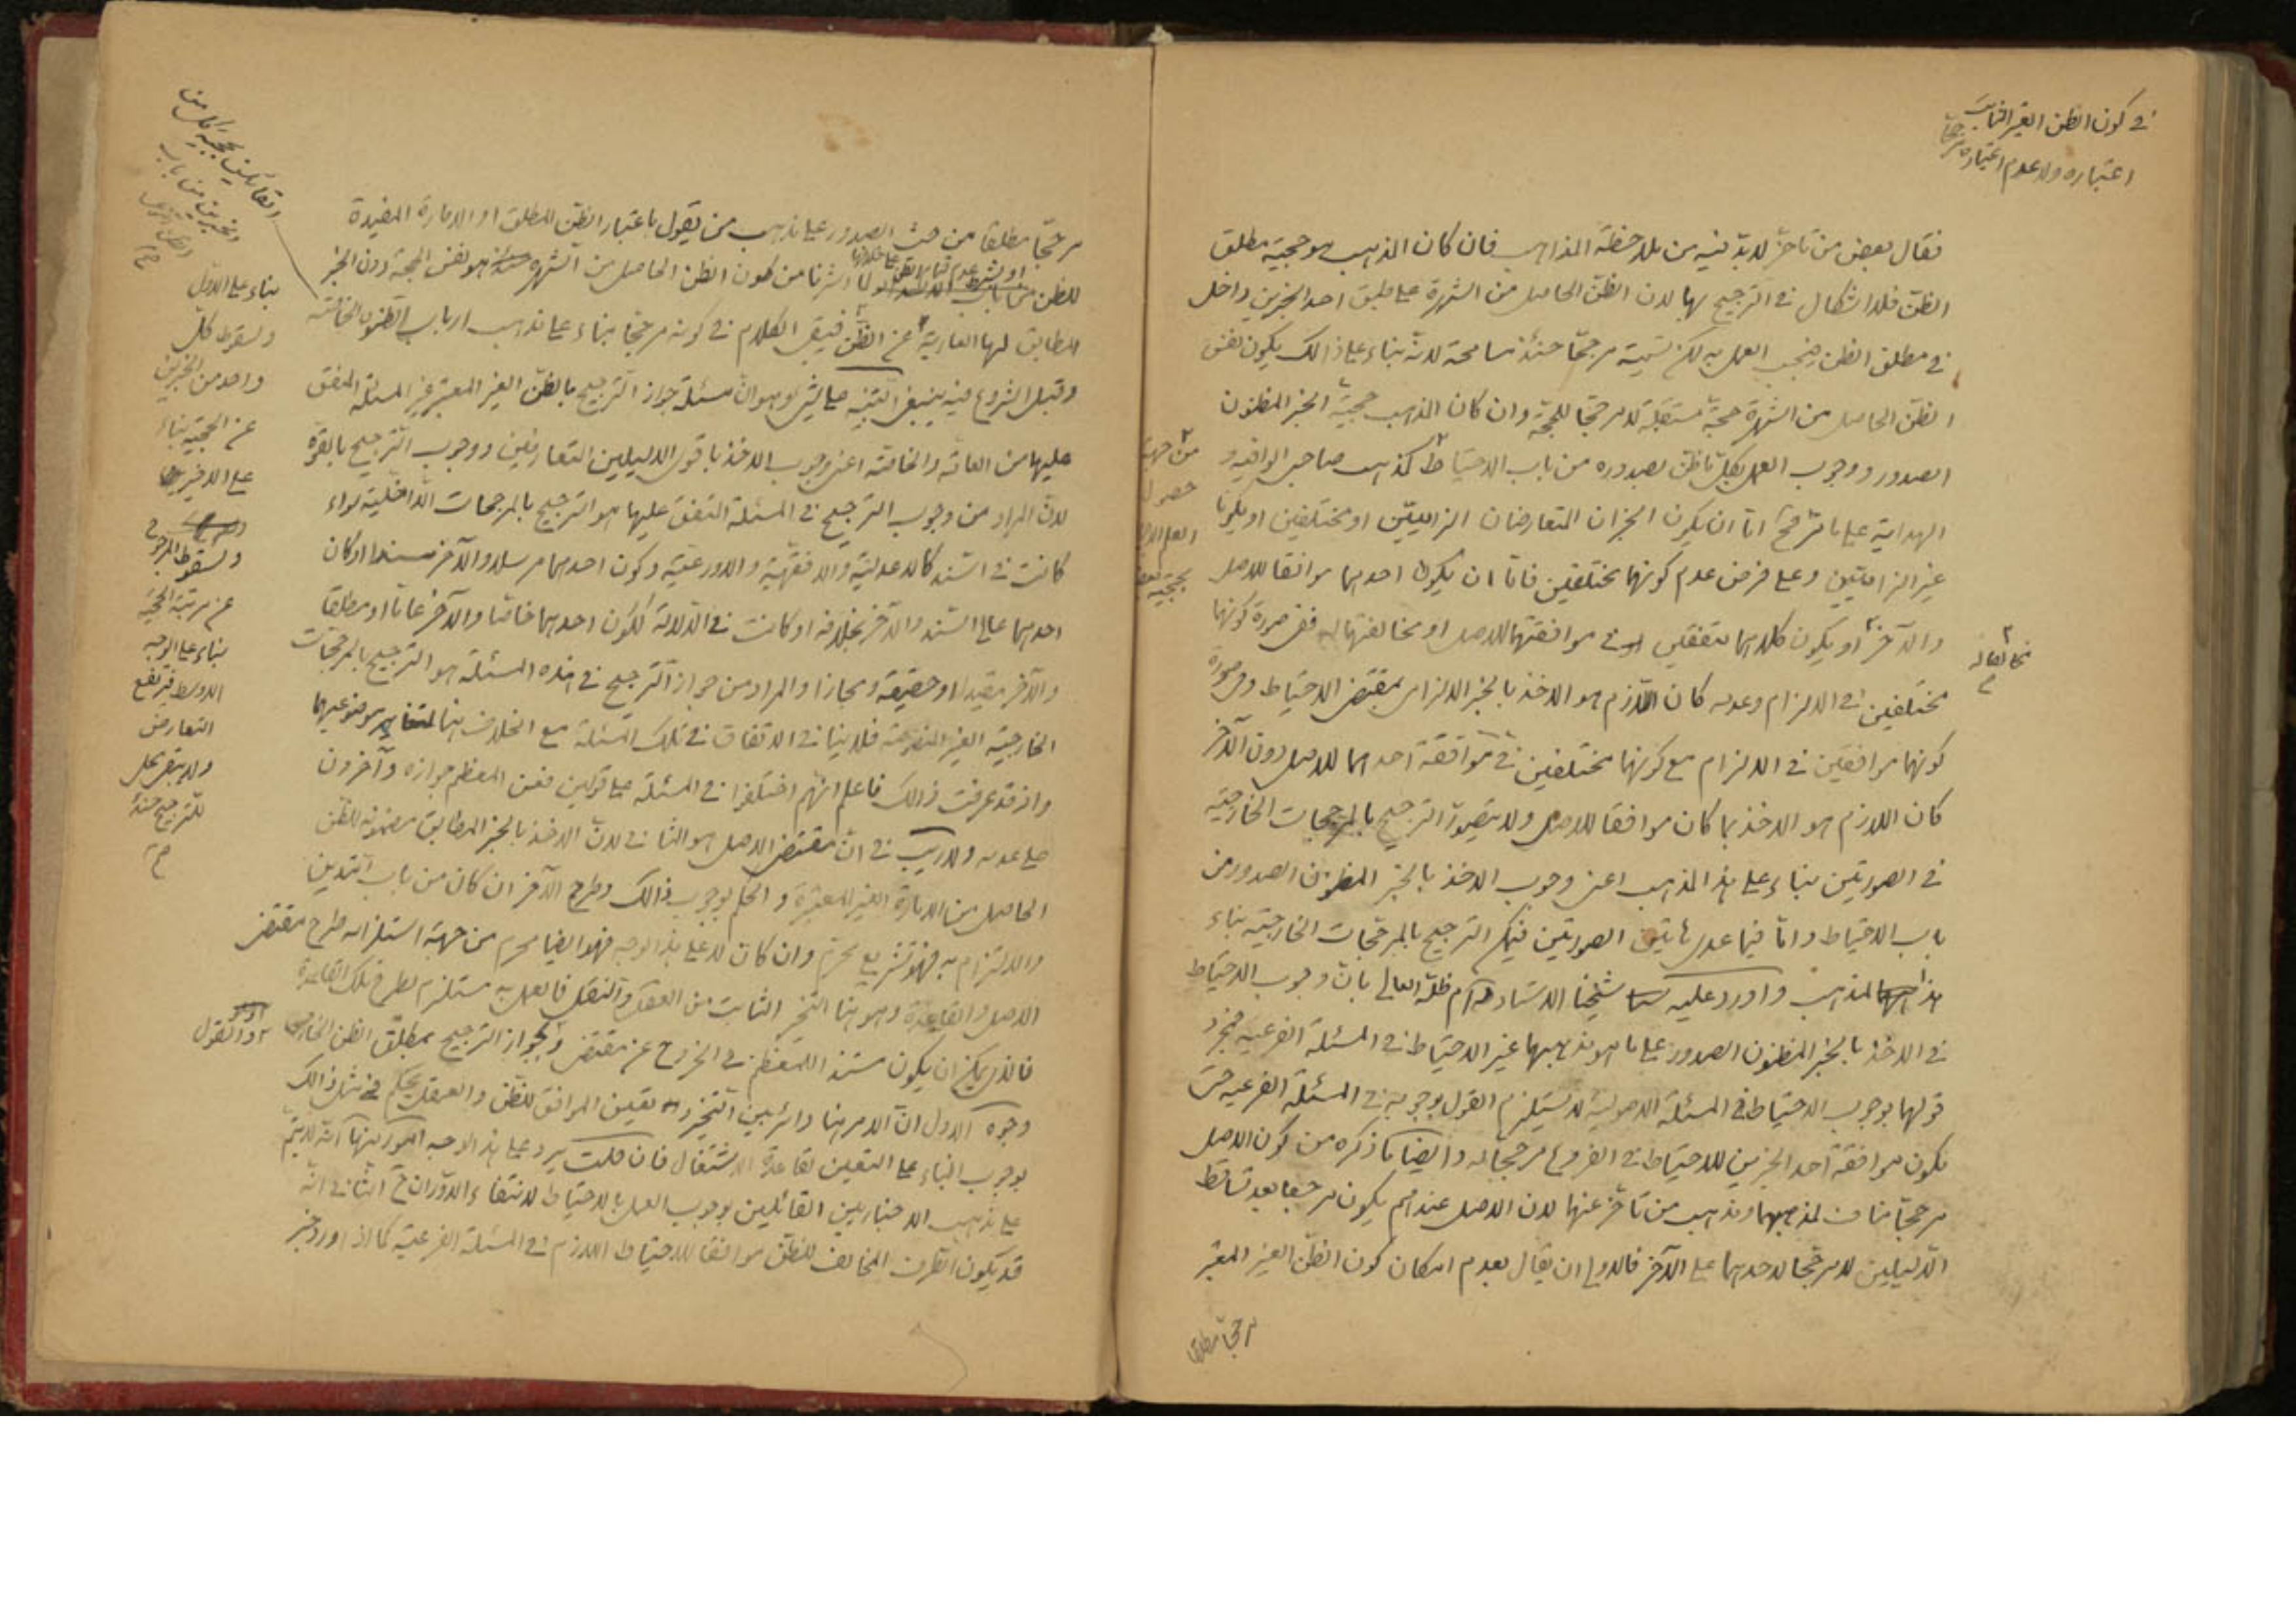 في كون الظن الغير الثابت
اعتباره ولا عدم اعتباره مرجحا
فقال بعض من تأخر لا بد فيه من ملاحظة المذاهب فان كان المذهب هو حجية مطلق
الظن فلا اشكال في الترجيح بها لان الظن الحاصل من الشهرة على طبق احد الخبرين داخل
في مطلق الظن فيجب العمل به لكن تسميته مرجحا حينئذ مسامحة لانه بناء على ذالك يكون نفس
الظن الحاصل من الشهرة حجة مستقلة لا مرجحا للحجة وان كان المذهب حجية الخبر المظنون
الصدور ووجوب العمل بكل ما ظن بصدوره من باب الاحتياط كمذهب صاحب الوافيه و
الهداية على ما اما ان يكون الخبران المتعارضان الزاميين او مختلفين او يكونا
غير الزاميين وعلى فرض عدم كونهما مختلفين فاما ان يكون احدهما موافقا للاصل
والآخر او يكون كلاهما متفقين في موافقتهما للاصل او مخالفتهما له ففي صورة كونهما
مخالفا له
مختلفين في الالزام وعدمه كان اللازم هو الاخذ بالخبر الالزامي بمقتضى الاحتياط وفي صورة
كونهما موافقين في الالزام مع كونهما مختلفين في موافقة احدهما للاصل دون الآخر
كان اللازم هو الاخذ بما كان موافقا للاصل ولا يتصور الترجيح بالمرجحات الخارجية
في الصورتين بناء على هذا المذهب اعني وجوب الاخذ بالخبر المظنون الصدور من
باب الاحتياط واما فيما عدى هاتين الصورتين فيمكن الترجيح بالمرجحات الخارجية بناء
هذا المذهب واورد عليه شيخنا الاستاد دام ظله العالي بان وجوب الاحتياط
في الاخذ بالخبر المظنون الصدور على ما هو مذهبهما غير الاحتياط في المسئلة الفرعية فمجرد
قولهما بوجوب الاحتياط في المسئلة الاصولية لا يستلزم القول بوجوبه في المسئلة الفرعيه حتى
يكون موافقة احد الخبرين للاحتياط في الفروع مرجحا له وايضا ما ذكره من كون الاصل
مرجحا مناف لمذهبهما ومذهب من تأخر عنهما لان الاصل عندهم يكون مرجعا بعد تساقط
الدليلين لا مرجحا لاحدهما على الآخر فالاولى ان يقال بعدم امكان كون الظن الغير المعتبر
مرجحا مطلقا
من جهة
حصول
العلم
بحجية بعض
مرجحا مطلقا من حيث الصدور على مذهب من يقول باعتبار الظن المطلق او الامارة المفيدة
للظن لما اشرنا من كون الظن الحاصل من الشهرة هو نفس الحجة دون الخبر
المطابق لها العارية عن الظن فيبقى الكلام في كونه مرجحا بناء على مذهب ارباب الظنون الخاصة
وقبل الشروع فيه ينبغي التنبيه على شيئ وهو ان مسئلة جواز الترجيح بالظن الغير المعتبر غير المسئلة المتفق
عليها من العامة والخاصة اعني وجوب الاخذ باقوى الدليلين المتعارضين ووجوب الترجيح بالقوة
لان المراد من وجوب الترجيح في المسئلة المتفق عليها هو الترجيح بالمرجحات الداخلية سواء
كانت في السند كالاعدلية والافقهية والاورعية وكون احدهما مرسلا والآخر مسندا او كان
احدهما عالي السند والآخر بخلافه او كانت في الدلالة ككون احدهما خاصا والآخر عاما او مطلقا
والآخر مقيدا او حقيقة ومجازا والمراد من جواز الترجيح في هذه المسئلة هو الترجيح بالمرجحات
الخارجية الغير المنصوصة فلا ينافي الاتفاق في تلك المسئلة مع الخلاف هنا لتغاير موضوعيهما
واذ قد عرفت ذالك فاعلم انهم اختلفوا في المسئلة على قولين فعن المعظم جوازه وآخرون
على عدمه ولا ريب في ان مقتضى الاصل هو الثاني لان الاخذ بالخبر المطابق مضمونه للظن
الحاصل من الامارة الغير المعتبرة والحكم بوجوب ذالك وطرح الآخر ان كان من باب التدين
والالتزام به فهو تشريع محرم وان كان لا على هذا الوجه فهو ايضا محرم من جهة استلزامه طرح مقتضى
الاصل والقاعدة وهو هنا التخير الثابت من العقل والنقل فالعمل به مستلزم لطرح تلك القاعدة
فالذي يمكن ان يكون مستند المعظم في الخروج عن مقتضى والقول بجواز الترجيح بمطلق الظن الخارجي
وجوه الاول ان الامر هنا دائر بين التخيير وتعيين الموافق للظن والعقل يحكم في مثل ذالك
بوجوب البناء على التعيين لقاعدة الاشتغال فان قلت يرد على هذا الوجه امور منها انه لا يتم
على مذهب الاخباريين القائلين بوجوب العمل بالاحتياط لانتفاء الدوران ح الثاني انه
قد يكون الطرف المخالف للظن موافقا للاحتياط اللازم في المسئلة الفرعية كما اذا ورد خبر
القائلين بحجية كل من
الخبرين من باب
بناء على الاول
ولسقوط كل
واحد من الخبرين
عن الحجية بناء
على الاخير
ولسقوط المرجوح
عن مرتبة الحجية
بناء على الوجه
الاوسط فيرتفع
التعارض
ولا يبقى محل
للترجيح حينئذ